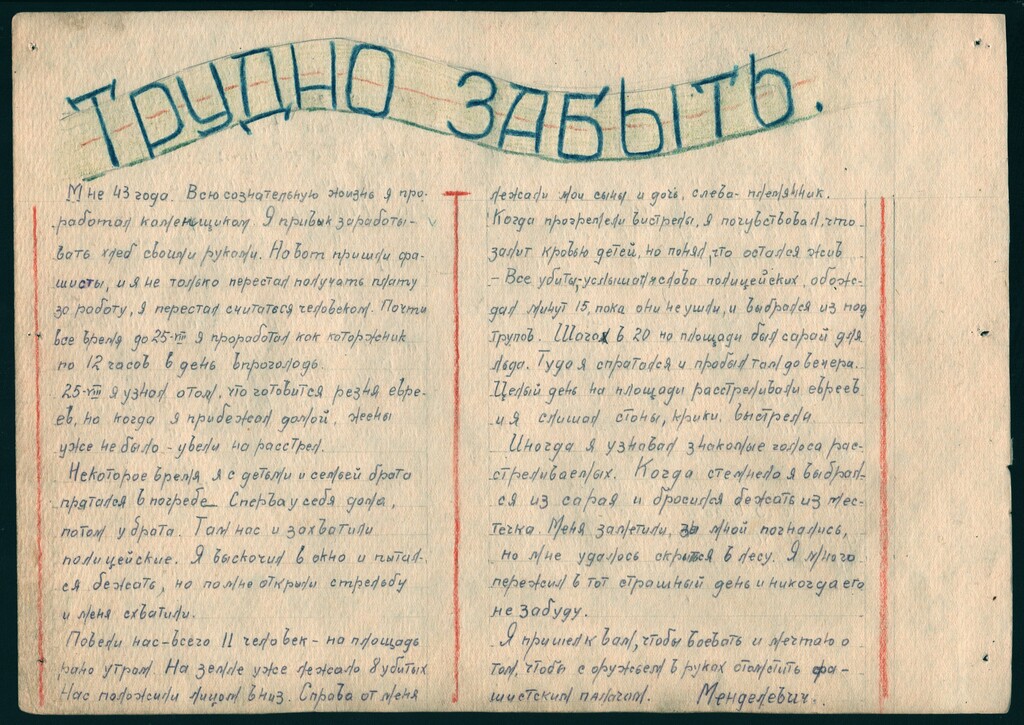 ТРУДНО ЗАБЫТЬ.
Мне 43 года. Всю сознательную жизнь я про-
работал каменьщиком. Я привык заработы-
вать хлеб своими руками. Но вот пришли фа-
шисты, и я не только перестал получать плату
за работу, я перестал считаться человеком. Почти
все время до 25-VIII я проработал как каторжник
по 12 часов в день впроголодь.
25-VIII я узнал о том, что готовится резня евре-
ев, но когда я прибежал домой, жены
уже не было - увели на расстрел.
Некоторое время я с детьми и семьей брата
прятался в погребе. Сперва у себя дома,
потом у брата. Там нас и захватили
полицейские. Я выскочил в окно и питал-
ся бежать, но по мне открыли стрельбу
и меня схватили.
Повели нас - всего 11 человек - на площадь
рано утром. На земле уже лежало 8 убитых
Нас положили лицом вниз. Справа от меня
лежали мои сыны и дочь, слева - племянник.
Когда прогремели вистрелы, я почувствовал, что
залит кровью детей, но понял, что остался жив
- Все убиты, - услышал я слова полицейских, обож-
дал минут 15, пока они не ушли, и выбрался из под
трупов. Шагах в 20 на площади был сарай для
льда. Туда я спратался и пробыл там до вечера.
Целый день на площади расстреливали евреев
и я слишал стоны, крики, выстрелы.
Иногда я узнавал знакомые голоса рас-
стреливаемых. Когда стемнело я выбрал-
ся из сарая и бросился бежать из мес-
течка. Меня заметили, за мной погнались,
но мне удалось скрыться в лесу. Я много
пережил в тот страшный день и никогда его
не забуду.
Я пришел к вам, чтобы воевать и мечтаю о
том, чтобы с оружьем в руках отомстить фа-
шистским палачам. Менделевич.